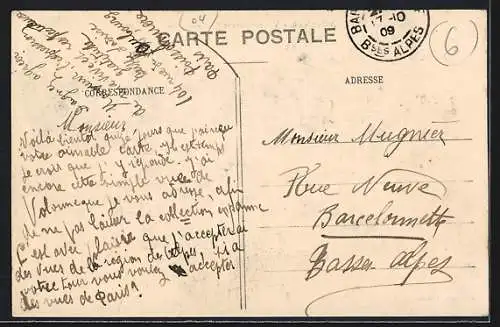 (04
CARTE POSTALE
6
BAR
17-10
09
BSES ALPES
CORRESPONDANCE
ADRESSE
Monsieur
Voilà bientôt quinze jours que j'ai reçu
votre aimable carte, il est temps
je crois que j'y réponde. J'ai
encore cette simple vue de
que je vous adresse, afin
de ne pas laisser la collection en panne
C'est avec plaisir que j'accepterai
des vues de la région des alpes, si à
votre tour vous voulez accepter
des vues de Paris.
Monsieur Mugnier
Rue Neuve
Barcelonnette
Basses Alpes
104 rue du
Paris